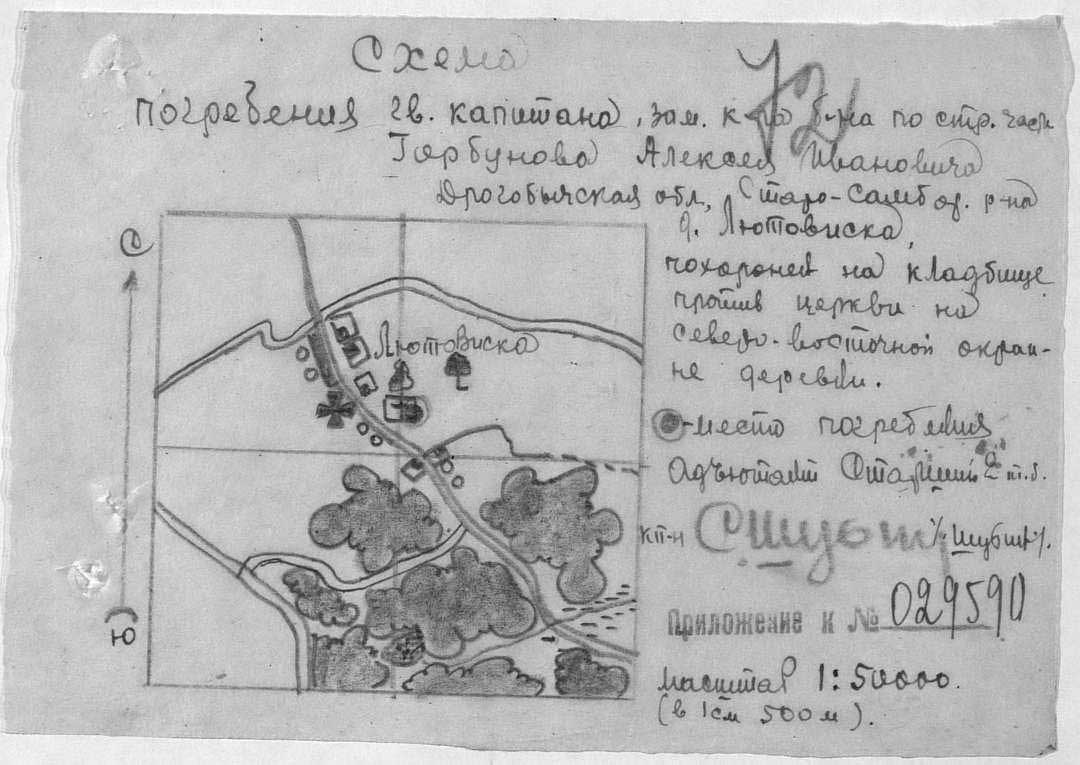 Схема
72
погребения гв. капитана, зам. к-ра б-на по стр. части
Горбунова Алексея Ивановича
Дрогобычская обл., Старо-Самбор. р-на
д. Лютовиска,
похоронен на кладбище
против церкви на
северо-восточной окраи-
не деревни.
С
Лютовиска
-место погребения
Адъютант Старший 2 т.б.
к-н Шубин /Шубин/.
Приложение к № 029590
Ю
масштаб 1:50000.
(в 1см 500м).